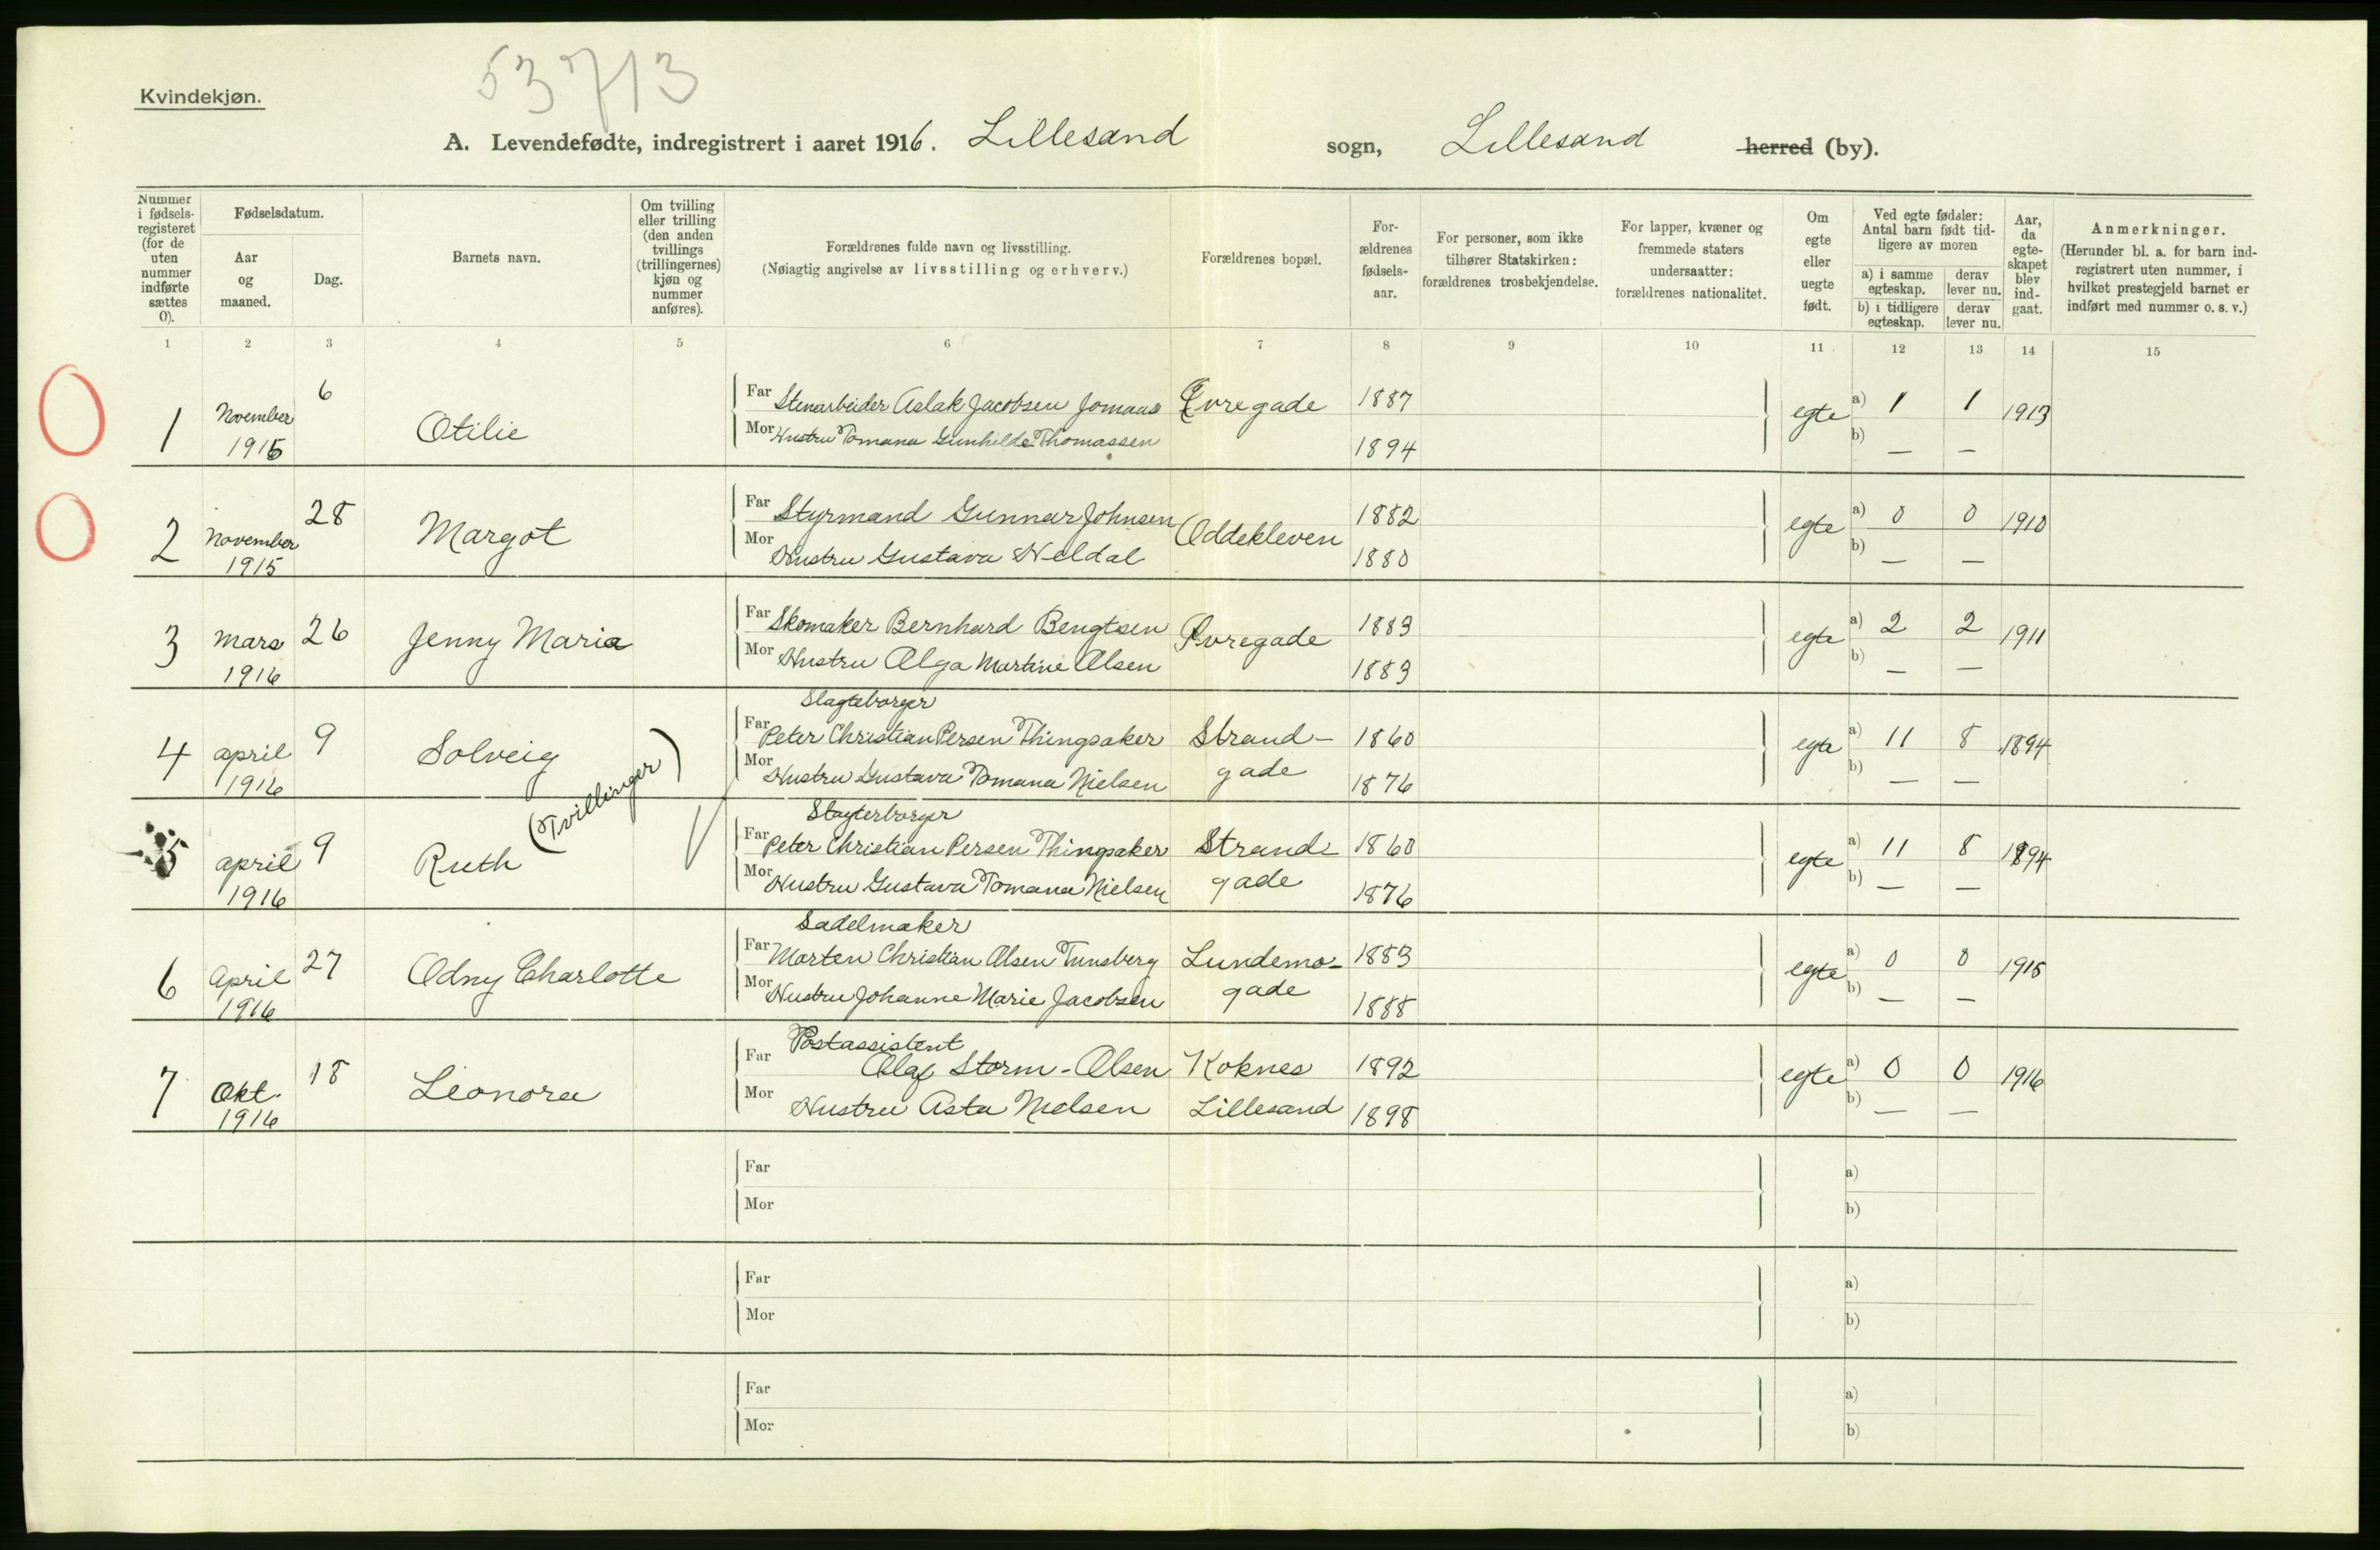 53713
Kvindekjøn.
A. Levendefødte, indregistrert i aaret 1916. Lillesand sogn, Lillesand herred (by).
Nummer i fødsels-registeret (for de uten nummer indførte sættes 0).
Fødselsdatum.
Aar og maaned.
Dag.
Barnets navn.
Om tvilling eller trilling (den anden tvillings (trillingernes) kjøn og nummer anføres).
Forældrenes fulde navn og livsstilling.
(Nøiagtig angivelse av livsstilling og erhverv.)
Forældrenes bopæl.
For-ældrenes fødsels-aar.
For personer, som ikke tilhører Statskirken: forældrenes trosbekjendelse.
For lapper, kvæner og fremmede staters undersaatter: forældrenes nationalitet.
Om egte eller uegte født.
Ved egte fødsler: Antal barn født tid-ligere av moren
a) i samme egteskap.
derav lever nu.
b) i tidligere egteskap.
derav lever nu.
Aar, da egte-skapet blev ind-gaat.
Anmerkninger.
(Herunder bl. a. for barn ind-registrert uten nummer, i hvilket prestegjeld barnet er indført med nummer o. s. v.)
1 2 3 4 5 6 7 8 9 10 11 12 13 14 15
1 November 1915 6 Otilie
Far Stenarbeider Aslak Jacobsen Jomaas Øvregade 1887 egte a) 1 1 1913
Mor Hustru Tomana Gunhilde Thomassen 1894 b) — —
2 November 1915 28 Margot
Far Styrmand Gunnar Johnsen Oddekleven 1882 egte a) 0 0 1910
Mor Hustru Gustava Heldal 1880 b) — —
3 Mars 1916 26 Jenny Maria
Far Skomaker Bernhard Bengtsen Øvregade 1883 egte a) 2 2 1911
Mor Hustru Olga Martine Olsen 1883 b) — —
4 april 1916 9 Solveig (Tvillinger)
Slagteborger
Far Peter Christian Persen Thingsaker Strand- 1860 egte a) 11 8 1894
Mor Hustru Gustava Tomana Nielsen gade 1876 b) — —
5 april 1916 9 Ruth
Slagterborger
Far Peter Christian Persen Thingsaker Strand- 1860 egte a) 11 8 1894
Mor Hustru Gustava Tomana Nielsen gade 1876 b) — —
6 April 1916 27 Odny Charlotte
Sadelmaker
Far Morten Christian Olsen Tunsberg Lundemo- 1883 egte a) 0 0 1915
Mor Hustru Johanne Marie Jacobsen gade 1888 b) — —
7 Okt. 1916 18 Leonora
Postassistent
Far Olaf Storm-Olsen Koknes 1892 egte a) 0 0 1916
Mor Hustru Asta Nielsen Lillesand 1898 b) — —
Far a)
Mor b)
Far a)
Mor b)
Far a)
Mor b)